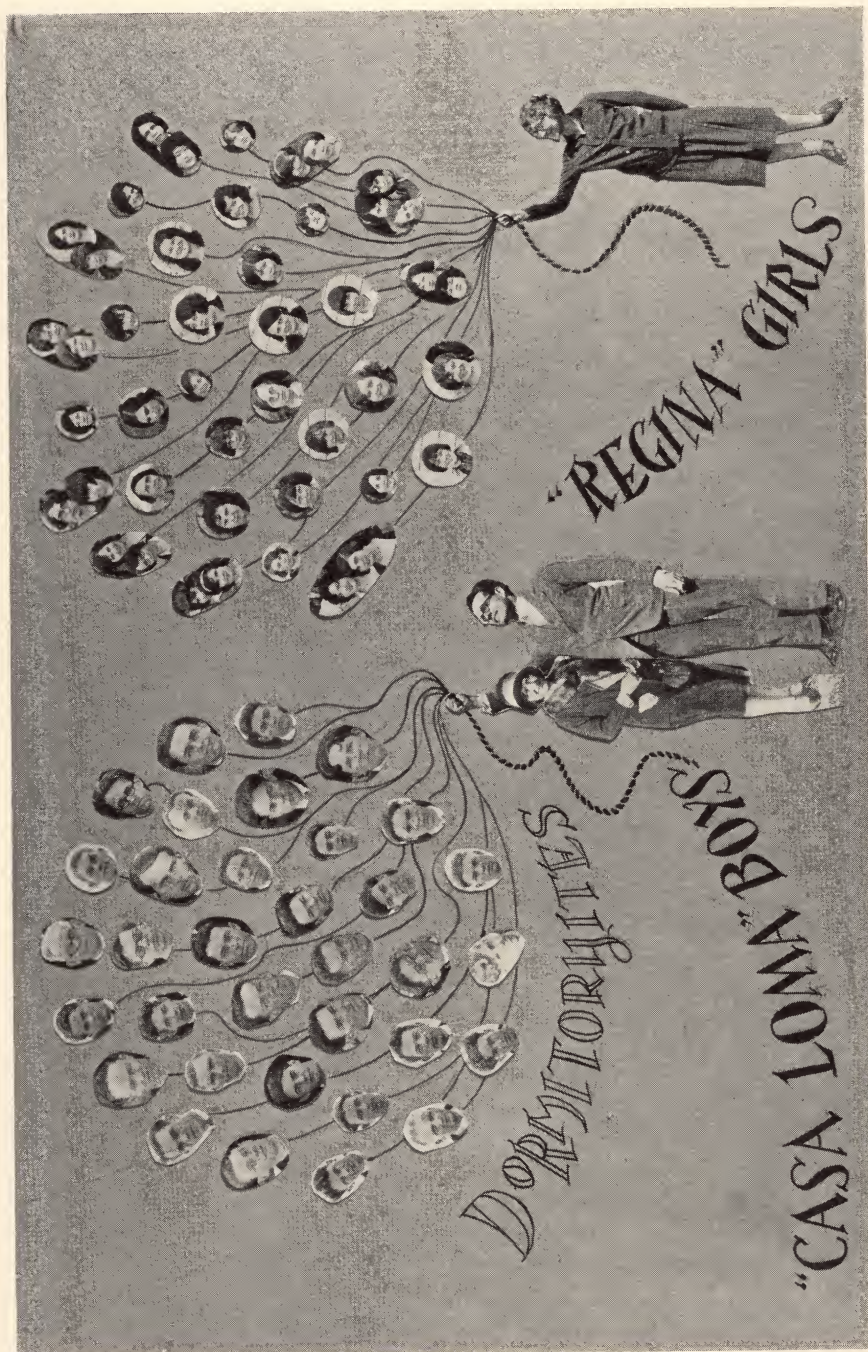 DORMITORYITES
"CASA LOMA" BOYS
"REGINA" GIRLS